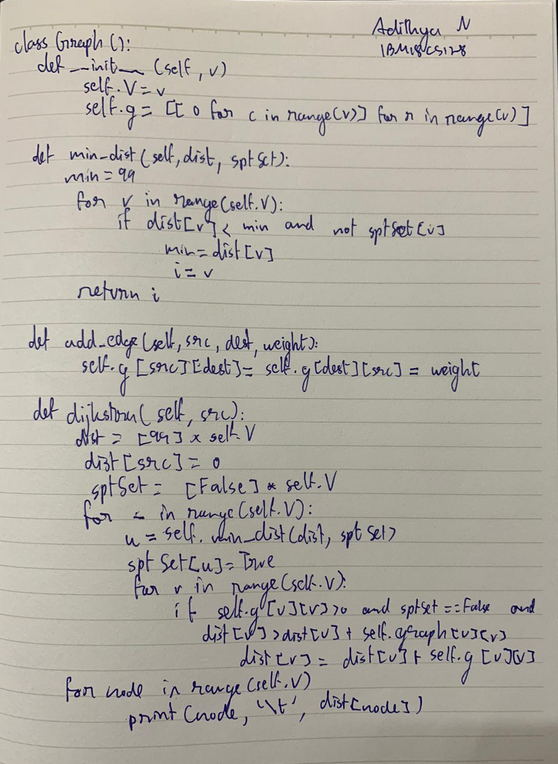 Adithya N
1BM18CS128
class Graph():
def __init__(self, v)
self.V = v
self.g = [[0 for c in range(v)] for r in range(v)]
def min_dist(self, dist, sptSet):
min = 99
for v in range(self.V):
if dist[v] < min and not sptSet[v]
min = dist[v]
i = v
return i
def add_edge(self, src, dest, weight):
self.g[src][dest] = self.g[dest][src] = weight
def dijkstra(self, src):
dist = [99] * self.V
dist[src] = 0
sptSet = [False] * self.V
for _ in range(self.V):
u = self.min_dist(dist, sptSet)
sptSet[u] = True
for v in range(self.V):
if self.g[u][v] > 0 and sptset == False and
dist[v] > dist[u] + self.graph[u][v]
dist[v] = dist[u] + self.g[u][v]
for node in range(self.V)
print(node, '\t', dist[node])